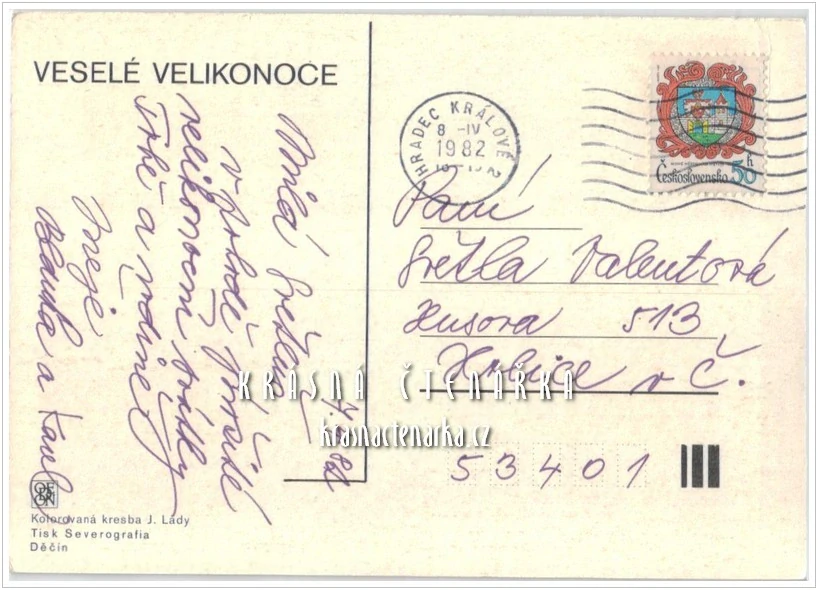 VESELÉ VELIKONOCE
Milá
v pohodě prožité
velikonoční svátky
Tobě a rodině
přeje
a
HRADEC KRÁLOVÉ 2
8 -IV
1982
50 h
Československo
Paní
Květla Valentová
Husova 513
v Č.
53401
KRÁSNÁ ČTENÁŘKA
krasnactenarka.cz
Kolorovaná kresba J. Lady
Tisk Severografia
Děčín